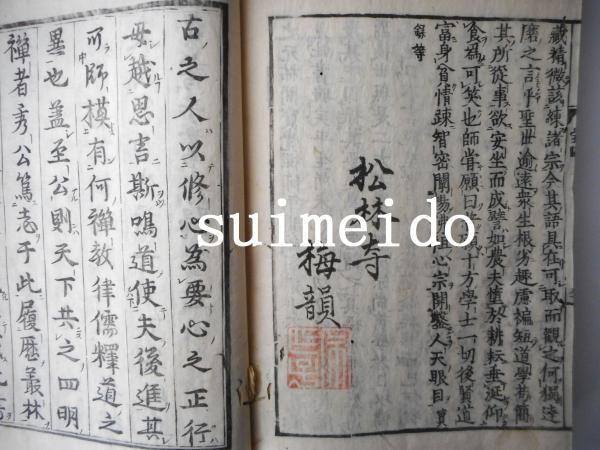 藏精微該練諸宗今其語具在可取而觀之何獨達
磨之言乎聖世逾遠衆生根劣趣慮褊短道學苟簡
其所從事欲安坐而成譬如農夫墮於耕耘垂涎仰
食為可笑也師甞願曰
十方學士一切後賢道
富身貧情疎智密
心宗開鑿人天眼目
錄等
松林寺
梅韻
古之人以修心為要心之正行
毋越思言斯鳴道使夫後進其
可師模有何禪教律儒釋道之
異也盖至公則天下共之四明
禪者秀公篤志于此履歷叢林
suimeido